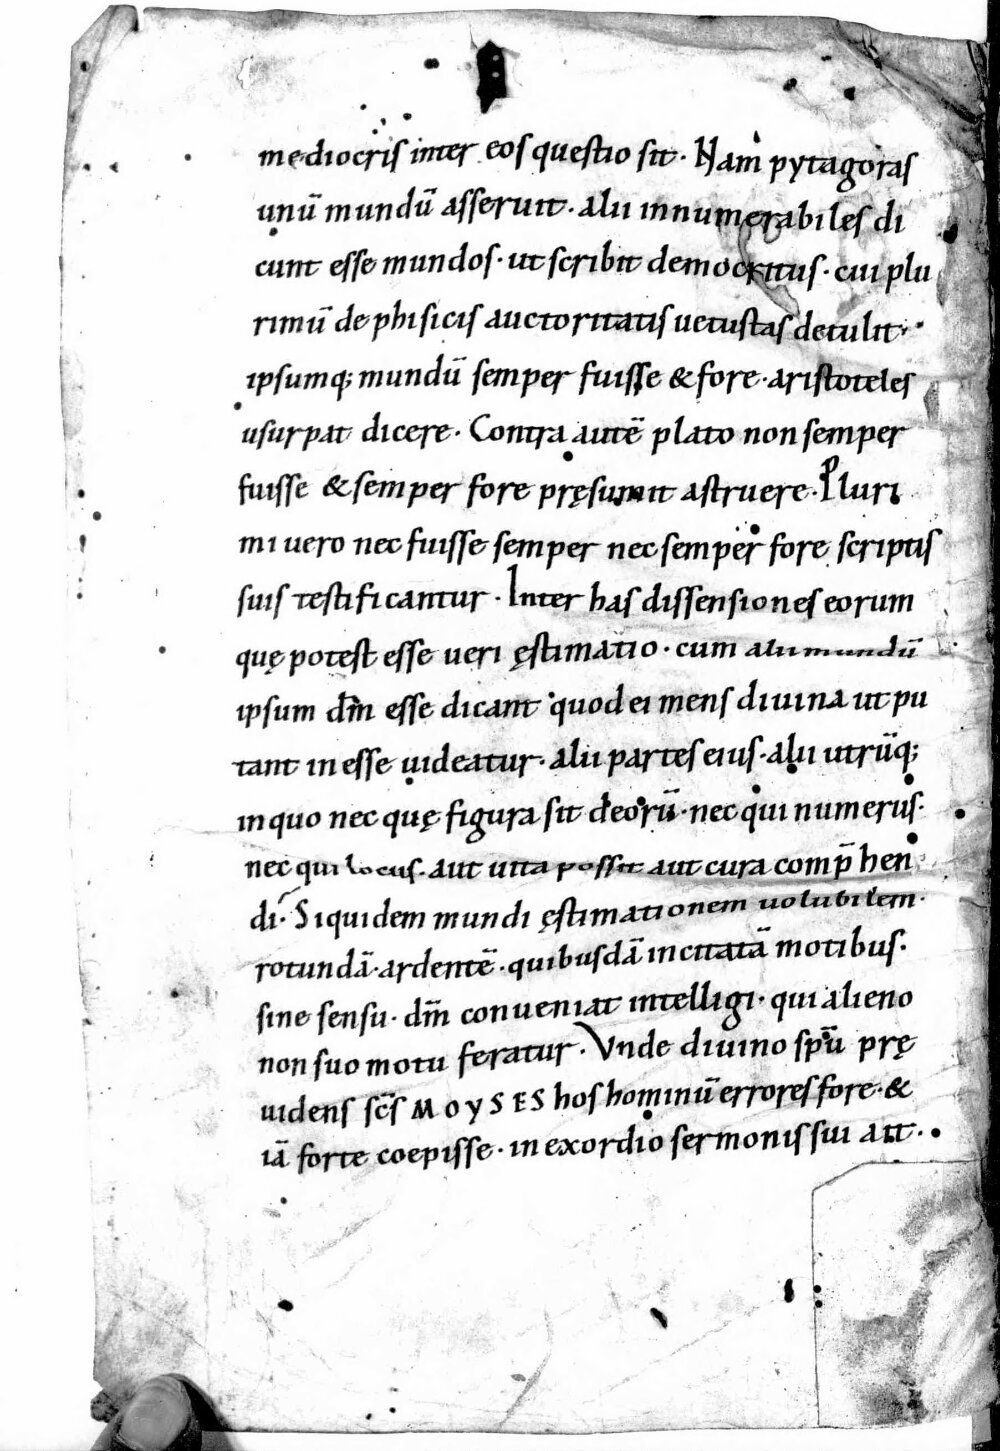 mediocris inter eos questio sit· Nam pytagoras
unū mundū asseruit· alii innumerabiles di
cunt esse mundos· ut scribit democritus· cui plu
rimū de phisicis auctoritatis uetustas detulit·
ipsumq; mundū semper fuisse & fore· aristoteles
usurpat dicere· Contra autē plato non semper
fuisse & semper fore pręsumit astruere· Pluri
mi uero nec fuisse semper nec semper fore scriptis
suis testificantur· Inter has dissensiones eorum
quę potest esse ueri ęstimatio· cum alii mundū
ipsum dm̄ esse dicant quod ei mens diuina ut pu
tant inesse uideatur· alii partes eius· alii utrūq;
in quo nec quę figura sit deorū· nec qui numerus·
nec qui locus· aut uita possit aut cura comp̄hen
di· Siquidem mundi ęstimationem uolubilem·
rotundā· ardentē· quibusdā incitatā motibus·
sine sensu· dm̄ conueniat intelligi· qui alieno
non suo motu feratur· Vnde diuino spū prę
uidens sc̄s MOYSES hos hominū errores fore· &
iā forte coepisse· in exordio sermonis sui ait·